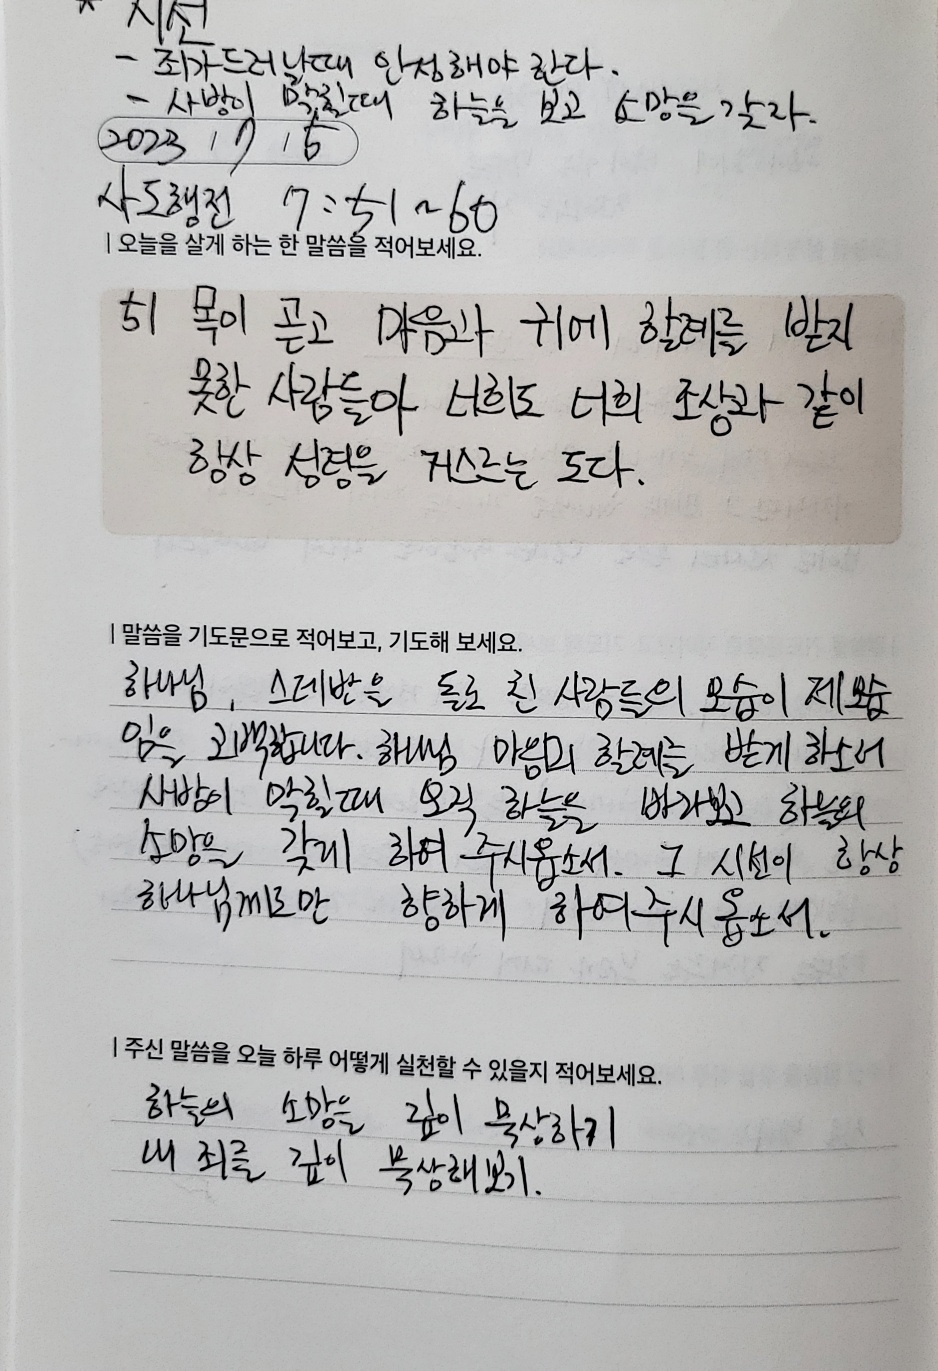 * 시선
- 죄가드러날때 인정해야 한다.
- 사방이 막힐때 하늘을 보고 소망을 갖자.
2023 / 7 / 5
사도행전 7:51~60
| 오늘을 살게 하는 한 말씀을 적어보세요.
51 목이 곧고 마음과 귀에 할례를 받지
못한 사람들아 너희도 너희 조상과 같이
항상 성령을 거스르는 도다.
| 말씀을 기도문으로 적어보고, 기도해 보세요.
하나님, 스데반을 돌로 친 사람들의 모습이 제모습
임을 고백합니다. 하나님 마음의 할례를 받게 하소서
사방이 막힐때 오직 하늘을 바라보고 하늘의
소망을 갖게 하여 주시옵소서. 그 시선이 항상
하나님께로만 향하게 하여주시옵소서.
| 주신 말씀을 오늘 하루 어떻게 실천할 수 있을지 적어보세요.
하늘의 소망을 깊이 묵상하기
내 죄를 깊이 묵상해보기.